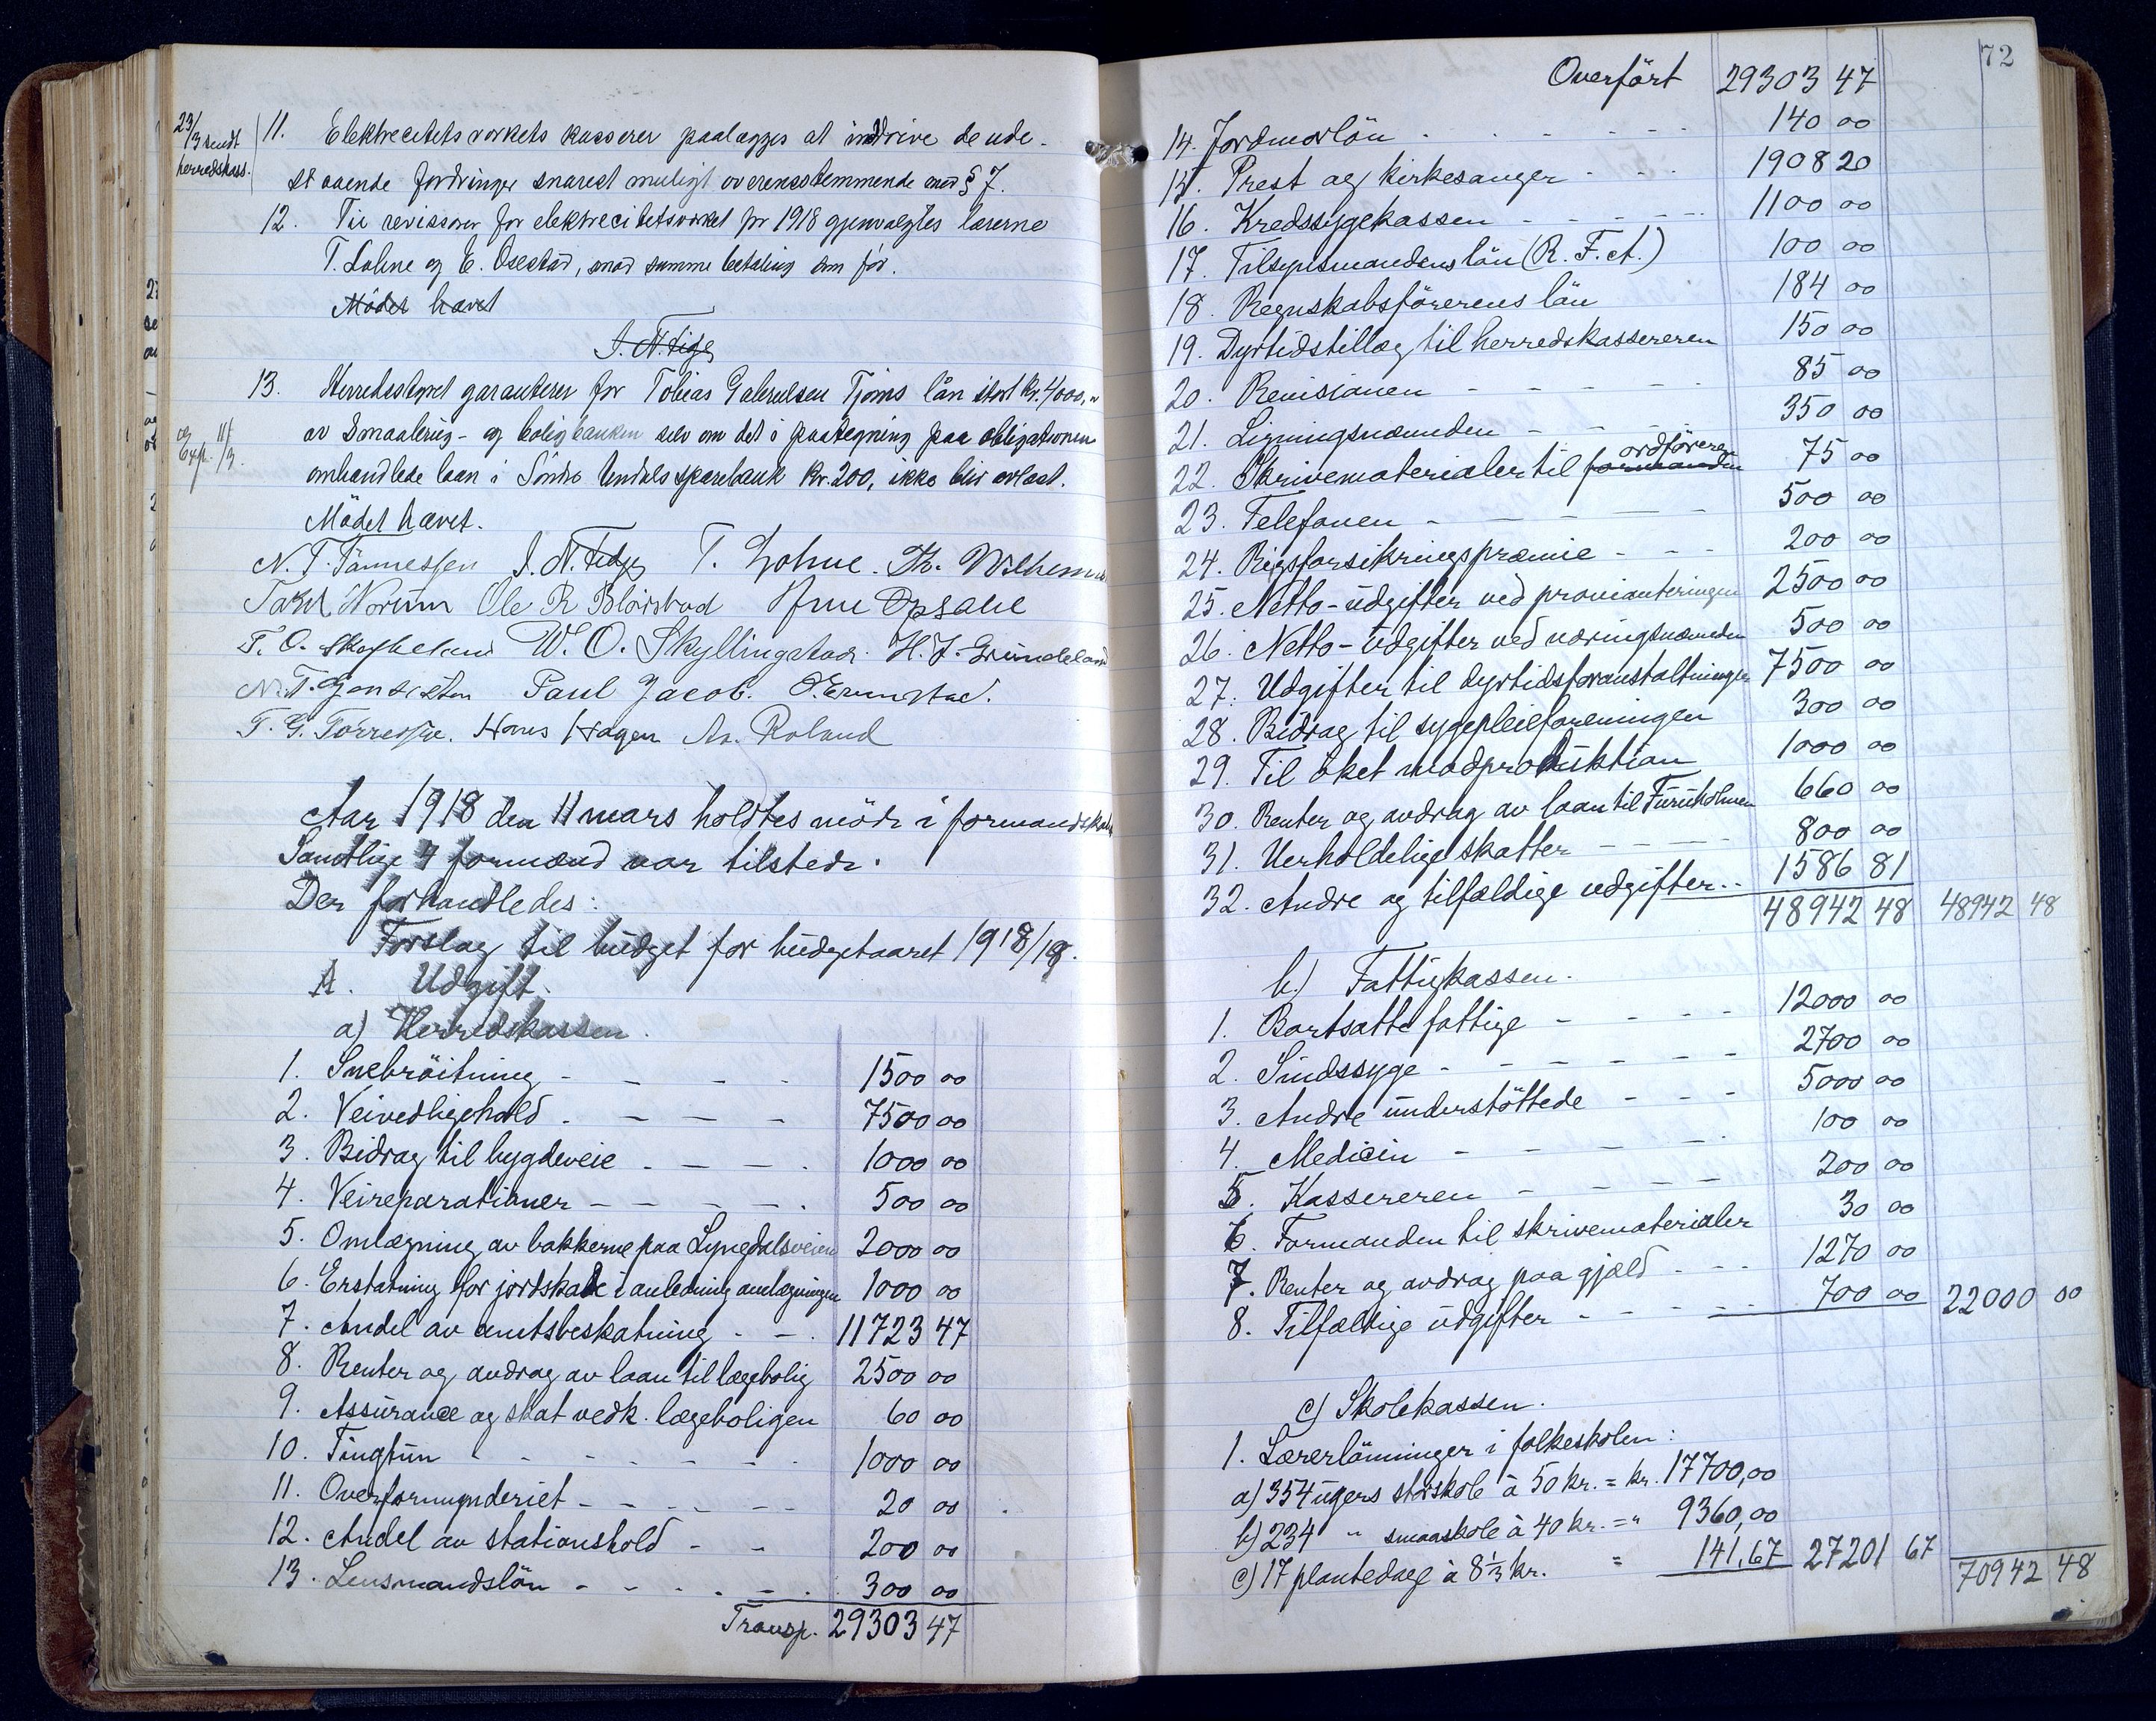 23/3 sendt
herredskass.
11. Elektrecitetsverkets kasserer paalægges at inddrive de ude-
staaende fordringer snarest muligt overensstemmende med § 7.
12. Til revisorer for elektrecitetsverket pr 1918 gjenvalgtes lærerne
T. Lohne og E. Osestad, mod samme betaling som før.
Mödet hævet
13. Herredsstyret garanterer for Tobias Gabrielsen Tjoms lån stort kr. 4000,"
av Smaabrug- og boligbanken selv om det i paategning paa obligationen
omhandlede laan i Söndre Undals sparebank kr. 200, ikke blir avløst.
Mödet hævet.
N. T. Tönnessen T. Lohne. Th. Wilhemsen
Ole R Blörstad Arne Opsahl
W. O. Skyllingstad. H. J. Grundeland
Paul Jacob.
Hans Hagen Aa. Roland
Aar 1918 den 11 mars holdtes möde i formandskab
Samtlige 4 formænd var tilstede.
Der forhandledes:
Forslag til budget for budgetaaret 1918/19.
A. Udgift.
a) Herredskassen.
1. Snebröitning - - - - 1500 00
2. Veivedligehold. - - - 7500 00
3. Bidrag til bygdeveie - - - . 1000 00
4. Veireparationer - - - - . 500 00
5. Omlægning av bakkerne paa Lyngdalsveien 2000 00
6. Erstatning for jordskade i anledning omlægningen 1000 00
7. Andel av amtsbeskatning - - . 11723 47
8. Renter og avdrag av laan til lægebolig 2500 00
9. Assurance og skat vedk. lægeboligen 60 00
10. Tinghun - - - - - - 1000 00
11. Overformynderiet - - - - - 20 00
12. Andel av stationshold - - 200 00
13. Lensmandslön - - - - - . 300 00
Transp. 29303 47
72
Overfört 29303 47
14. Jordmorlön - - - - - - 140 00
15. Prest og kirkesanger - - - 1908 20
16. Kredssygekassen - - - - - 1100 00
17. Tilsynsmandens lön (R. F. A.) 100 00
18. Regnskabsförerens lön 184 00
19. Dyrtidstillæg til herredskassereren 150 00
20. Revisionen - - - - - 85 00
21. Ligningsnævnden - - - - 350 00
22. Skrivematerialer til formanden ordförere 75 00
23. Telefonen - - - - - - 500 00
24. Rigsforsikringspræmie - - - 200 00
25. Netto-udgifter ved provianteringen 2500 00
26. Netto-udgifter ved næringsnævnden 500 00
27. Udgifter til dyrtidsforanstaltninger 7500 00
28. Bidrag til sygepleieforeningen 300 00
29. Til öket madproduktion 1000 00
30. Renter og avdrag av laan til Furuholmen 660 00
31. Uerholdelige skatter - - - - 800 00
32. Andre og tilfældige udgifter.. 1586 81
48942 48 48942 48
b.) Fattigkassen.
1. Bortsatte fattige - - - - 12000 00
2. Sindssyge - - - - - - 2700 00
3. Andre understöttede - - - 5000 00
4. Medicin - - - - - 100 00
5. Kassereren - - - - - 200 00
6. Formanden til skrivematerialer 30 00
7. Renter og avdrag paa gjæld - - - 1270 00
8. Tilfældige udgifter - - - - - 700 00 22000 00
c) Skolekassen.
1. Lærerlönninger i folkeskolen:
a) 354 ugers storskole à 50 kr. = kr. 17700,00
b) 234 " smaaskole à 40 kr. = " 9360,00
c) 17 plantedage à 8 1/3 kr. = 141,67 27201 67
70942 48